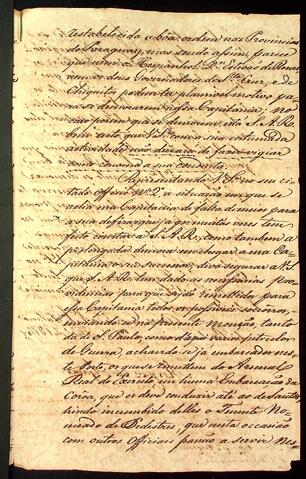 restabelecida a boa ordem nas Provincias
do Paraguay, mas sendo assim, parece
que nem o Hespanhol D.
nem os dous Governadores de S.ta Cruz, e de
Chiquitos podem ter plausivel motivo pa
ra se demorarem nessa Capitania,
como porem que se demorem, ella S. A. R.
certo que V. S.a com a sua
actividade não deixará de fazer vigiar
como convem a sua conducta.
Representando V. S.a no seu ci
tado Officio N.o 2.o a situação em que se
acha essa Capitania de falta de meios para
a sua defeza, que ja por muitas vezes tem
feito constar a S. A. R., como tambem a
prolongada demora em chegar a essa Ca
pitania os soccorros, devo segurar a V. S.a
que S. A. R. tem dado as necessarias Pro
videncias para que sejão remettidos para
essa Capitania todos os possiveis soccorros,
enviando-se na presente Monção, tanto
de S. Paulo, como daqui varios petrechos
de Guerra, achando-se ja embarcados nes
te Porto, os que se remettem do Arsenal
Real do Exercito, em huma Embarcação da
Coroa, que os deve conduzir até ao de Santos,
hindo incumbido delles o Tenente No
meado de Pedestres, que nesta occasião
com outros Officiaes passão a servir nes